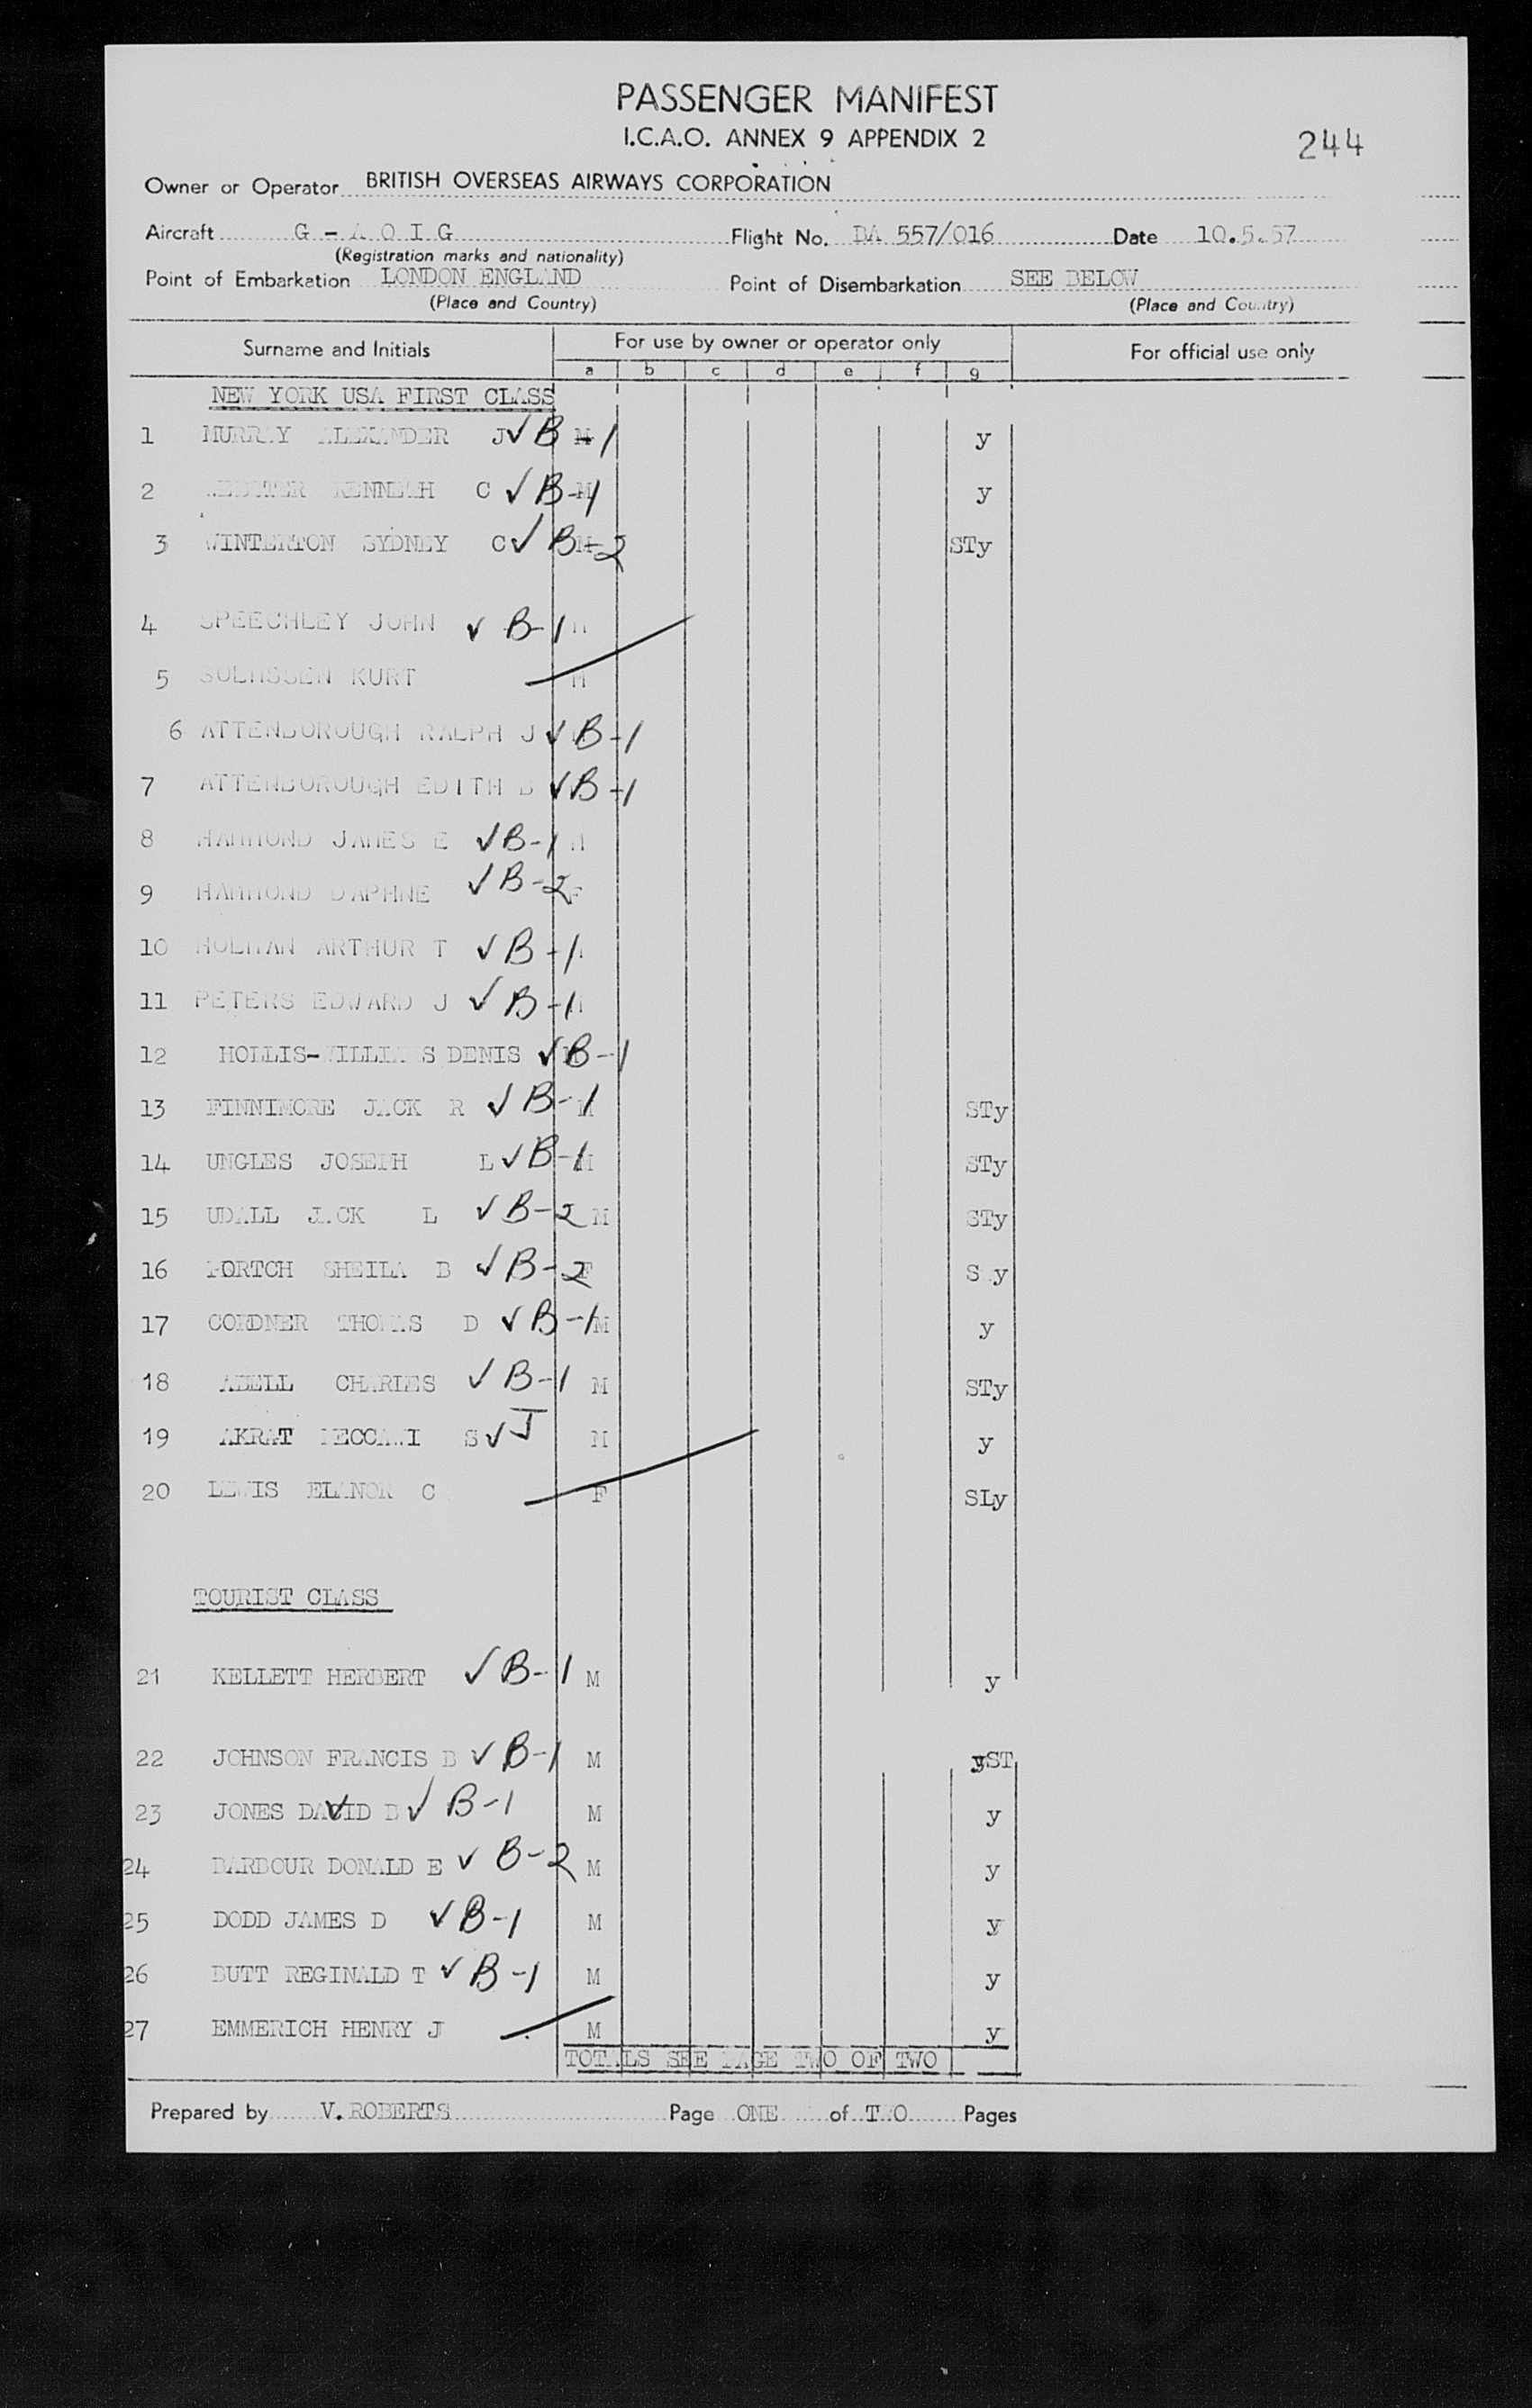 PASSENGER MANIFEST
I.C.A.O. ANNEX 9 APPENDIX 2
244
Owner or Operator BRITISH OVERSEAS AIRWAYS CORPORATION
Aircraft G - A O I G Flight No. BA 557/016 Date 10.5.57
(Registration marks and nationality)
Point of Embarkation LONDON ENGLAND Point of Disembarkation SEE BELOW
(Place and Country) (Place and Country)
Surname and Initials For use by owner or operator only For official use only
a b c d e f g
NEW YORK USA FIRST CLASS
1 MURRAY ALEXANDER J ✓ B-1 M y
2 KENNETH C ✓ B-1 M y
3 WINTERTON SYDNEY C ✓ B-2 M STy
4 SPEECHLEY JOHN ✓ B-1 M
5 KURT M
6 ATTENBOROUGH RALPH J ✓ B-1
7 ATTENBOROUGH EDITH B ✓ B-1
8 HAMMOND JAMES E ✓ B-1 M
9 HAMMOND DAPHNE ✓ B-2 F
10 HOLMAN ARTHUR T ✓ B-1
11 PETERS EDWARD J ✓ B-1 M
12 HOLLIS-WILLIAMS DENIS ✓ B-1
13 FINNIMORE JACK R ✓ B-1 M STy
14 UNGLES JOSEPH L ✓ B-1 M STy
15 UDALL JACK L ✓ B-2 M STy
16 PORTCH SHEILA B ✓ B-2 F S y
17 CORDNER THOMAS D ✓ B-1 M y
18 ABELL CHARLES ✓ B-1 M STy
19 AKRAT S ✓ J M y
20 LEWIS ELANOR C F SLy
TOURIST CLASS
21 KELLETT HERBERT ✓ B-1 M y
22 JOHNSON FRANCIS B ✓ B-1 M yST
23 JONES DAVID B ✓ B-1 M y
24 BARBOUR DONALD E ✓ B-2 M y
25 DODD JAMES D ✓ B-1 M y
26 BUTT REGINALD T ✓ B-1 M y
27 EMMERICH HENRY J M y
TOTALS SEE PAGE TWO OF TWO
Prepared by V. ROBERTS Page ONE of TWO Pages